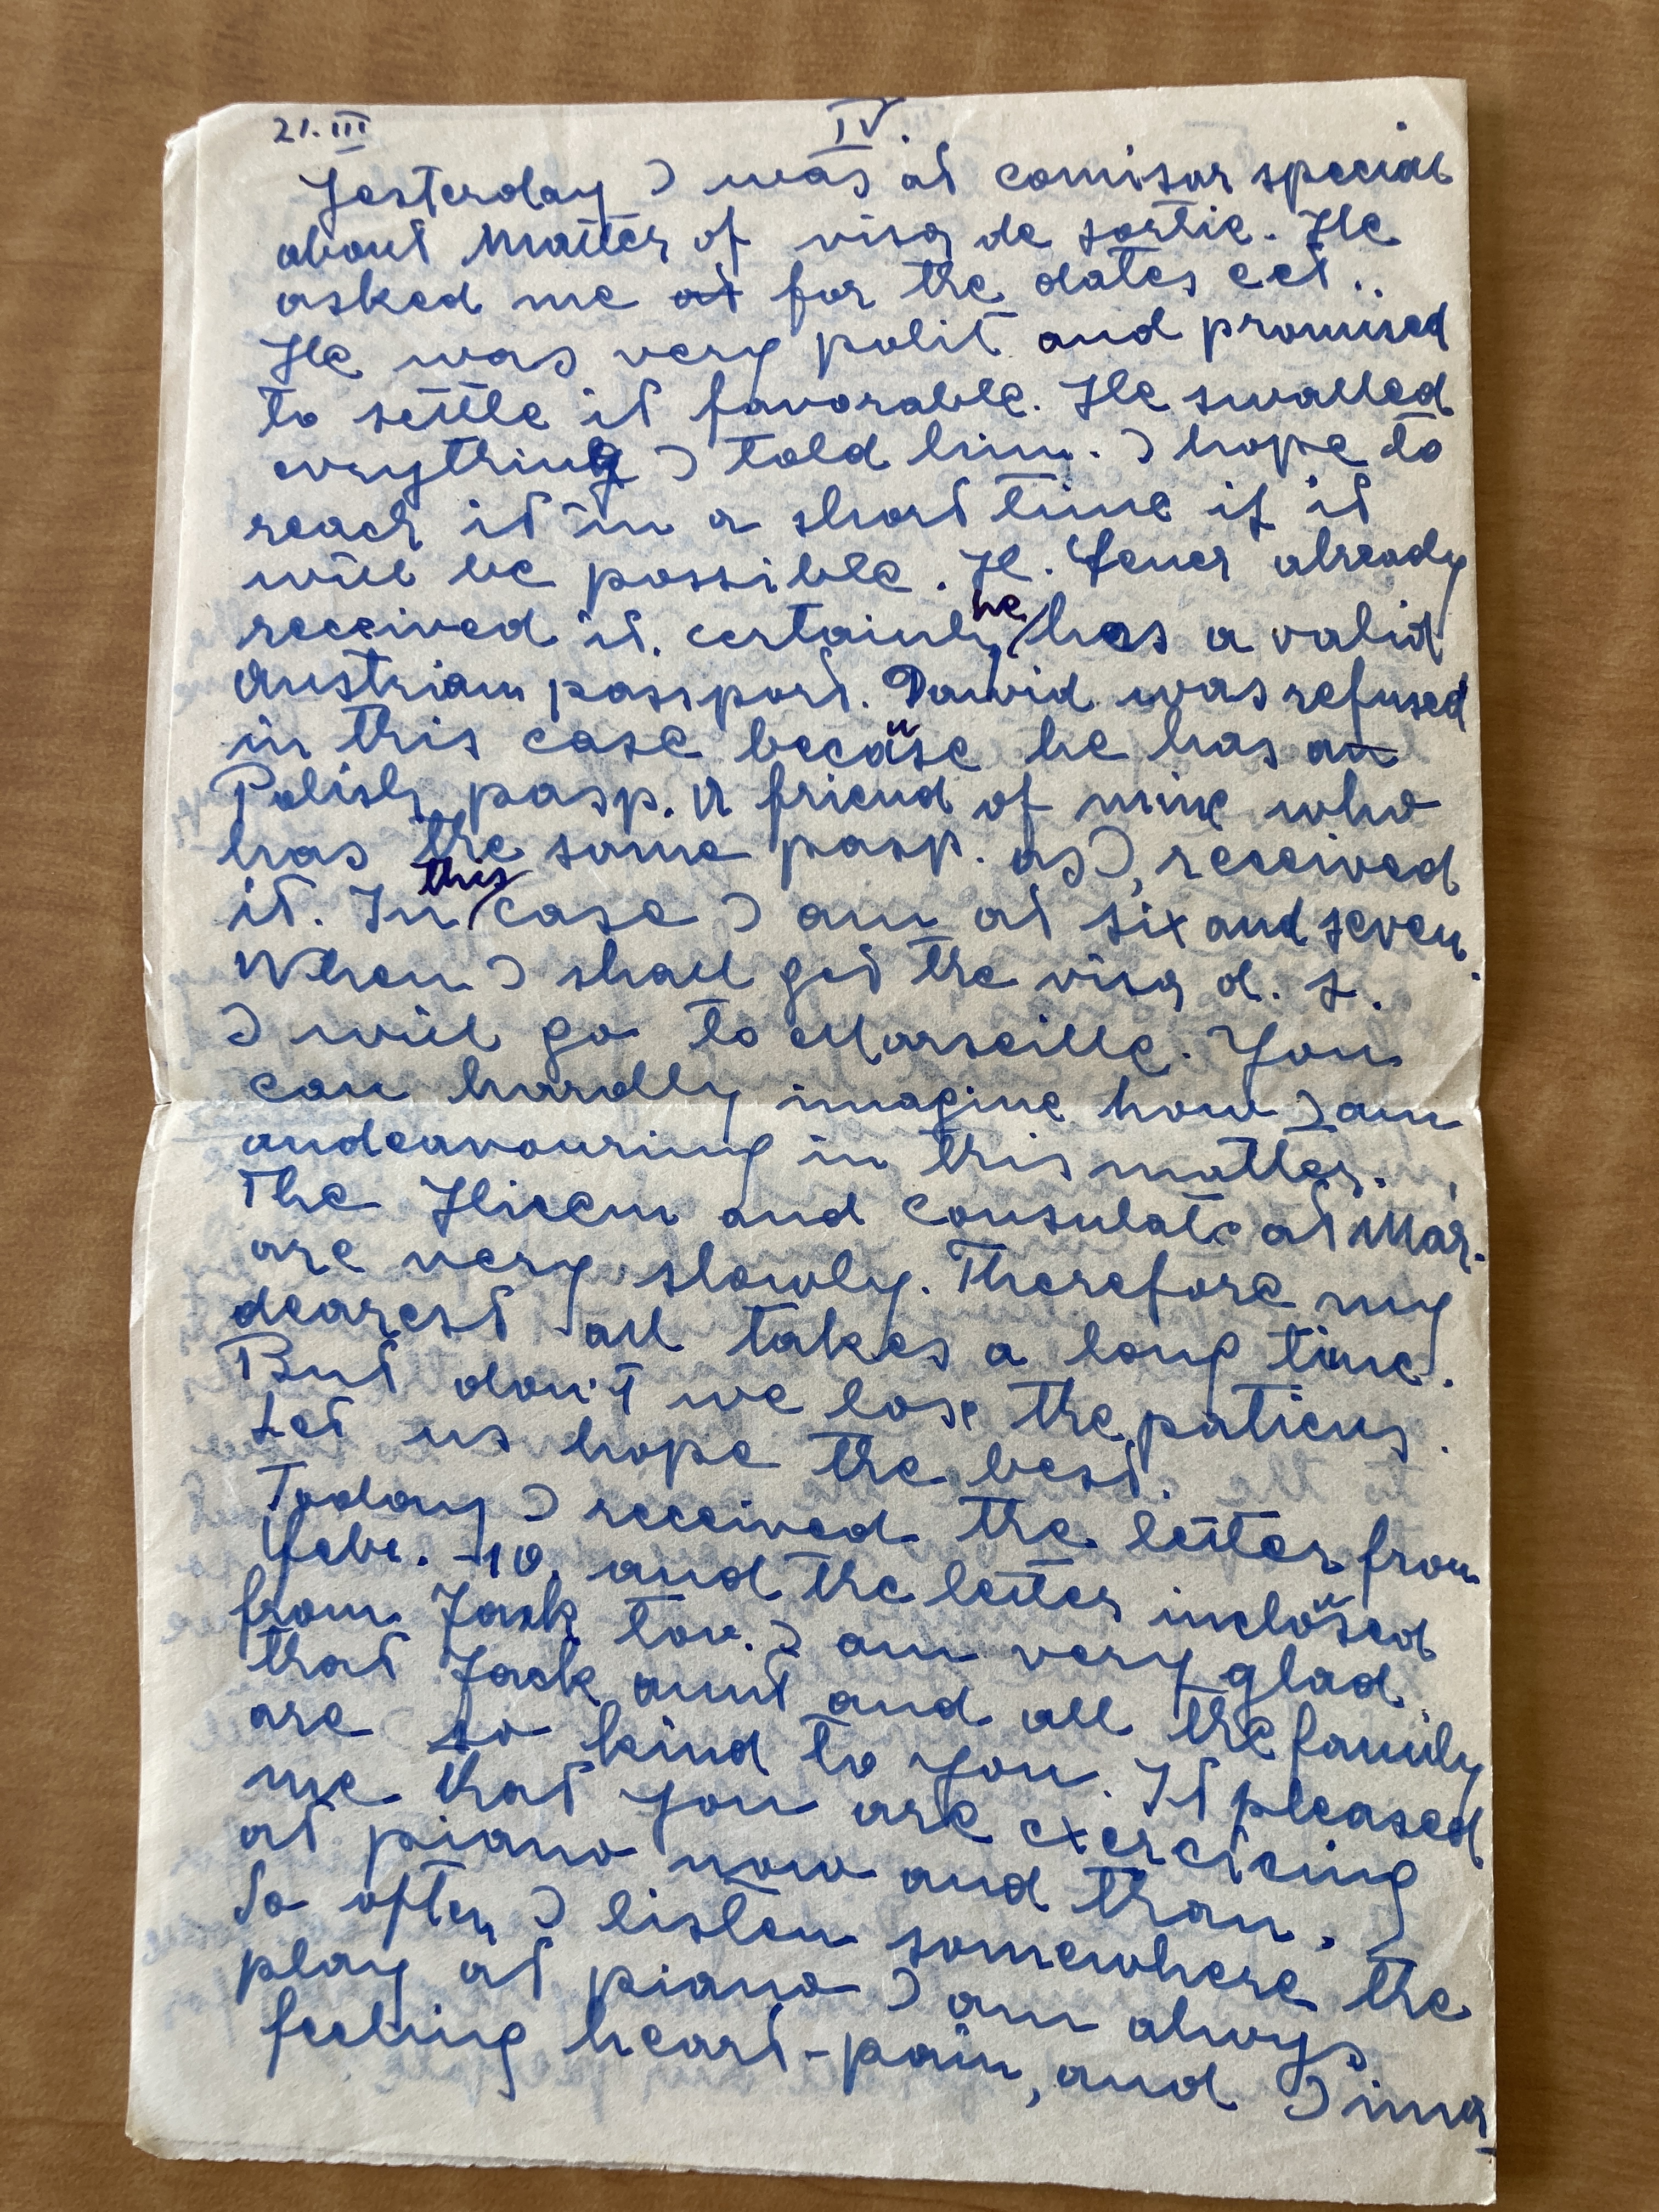 21. III
IV.
Yesterday I was at comisar special
about Matter of visa de sortie. He
asked me at for the dates ect..
He was very polit and promised
to settle it favorable. He swalled
evrything I told him. I hope to
reach it in a short time if it
will be possible. H. Feuer already
received it. certainly he has a valid
Austrian passport. Dawid was refused
in this case because he has an
Polish pasp. A friend of mine who
has the same pasp. as I, received
it. In this case I am at six and seven.
When I shall get the visa d. s.
I will go to Marseille. You
can hardly imagine how I am
andeavouring in this matter.
The Hicem and Consulate at Mar.
are very slowly. Therefore my
dearest all takes a long time.
But don't we lose the patiens.
Let us hope the best.
Today I received the letter from
Febr. -10. and the letter inclosed
from Jack tov. I am very glad
that Jack aunt and all the family
are so kind to you. It pleased
me that you are exercicing
at piano now and than.
So often I listen somewhere the
play at piano I am always
feeling heart-pain, and I ima-